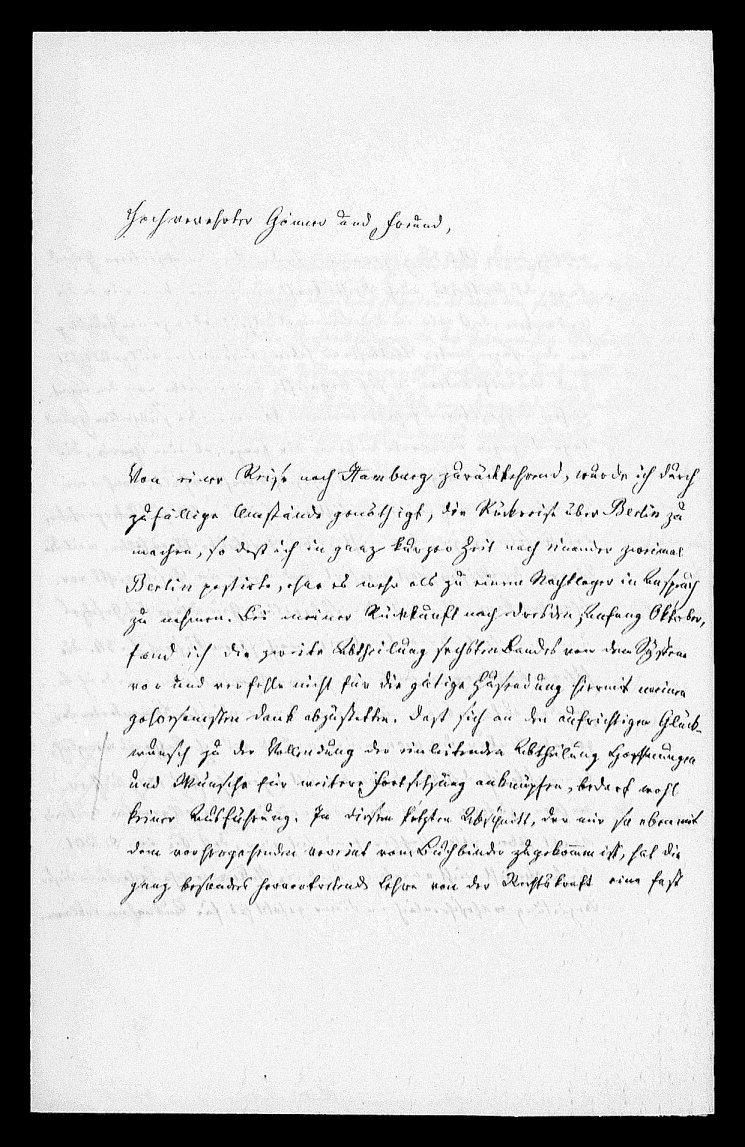 Hochverehrter Gönner und Freund,
Von einer Reise nach Hamburg zurückkehrend, wurde ich durch
zufällige Umstände genöthigt, die Rückreise über Berlin zu
machen, so daß ich in ganz kurzer Zeit nach einander zweimal
Berlin passirte, ohne es mehr als zu einem Nachtlager in Anspruch
zu nehmen. Bei meiner Rückkunft nach Dresden, Anfang Oktober,
fand ich die zweite Abtheilung sechsten Bandes von dem System
vor und verfehle nicht für die gütige Zusendung hiermit meinen
gehorsamsten Dank abzustatten. Daß sich an den aufrichtigen Glück-
wunsch zu der Vollendung der einleitenden Abtheilung Hoffnungen
und Wünsche für weitere Fortsetzung anknüpfen, bedarf wohl
keiner Ausführung. In diesem letzten Abschnitt, der mir so eben mit
dem vorhergehenden vereint vom Buchbinder zugekommen ist, hat die
ganz besonders hervortretende Lehre von der Rechtskraft eine fast